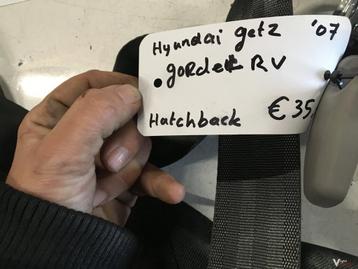 Hyundai getz '07
• gordel RV
Hatchback €35